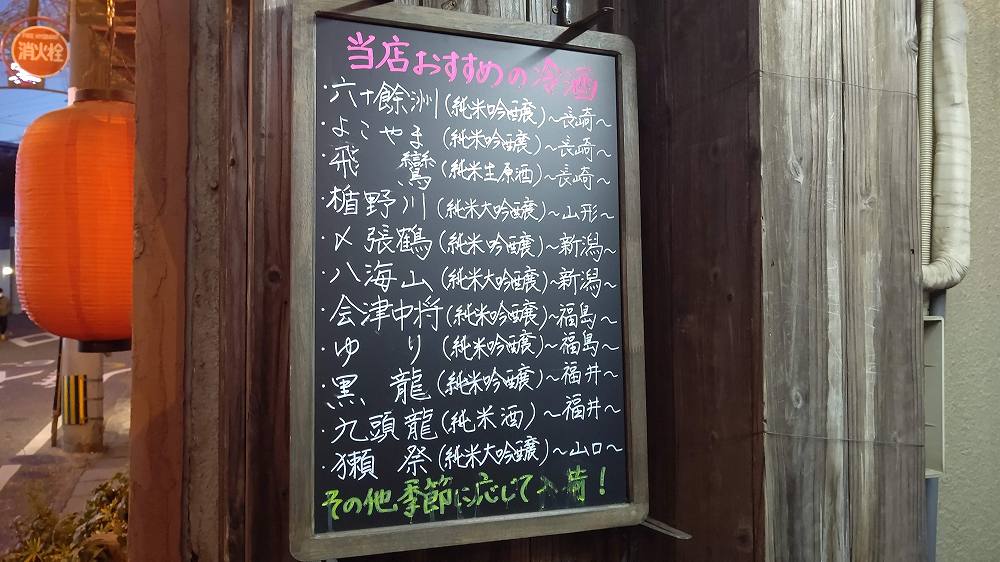 FIRE HYDRANT
消火栓
当店おすすめの冷酒
・六十餘洲(純米吟醸)~長崎~
・よこやま(純米吟醸)~長崎~
・飛鸞(純米生原酒)~長崎~
・楯野川(純米大吟醸)~山形~
・〆張鶴(純米吟醸)~新潟~
・八海山(純米大吟醸)~新潟~
・会津中将(純米吟醸)~福島~
・ゆり(純米吟醸)~福島~
・黒龍(純米吟醸)~福井~
・九頭龍(純米酒)~福井~
・獺祭(純米大吟醸)~山口~
その他季節に応じて入荷!